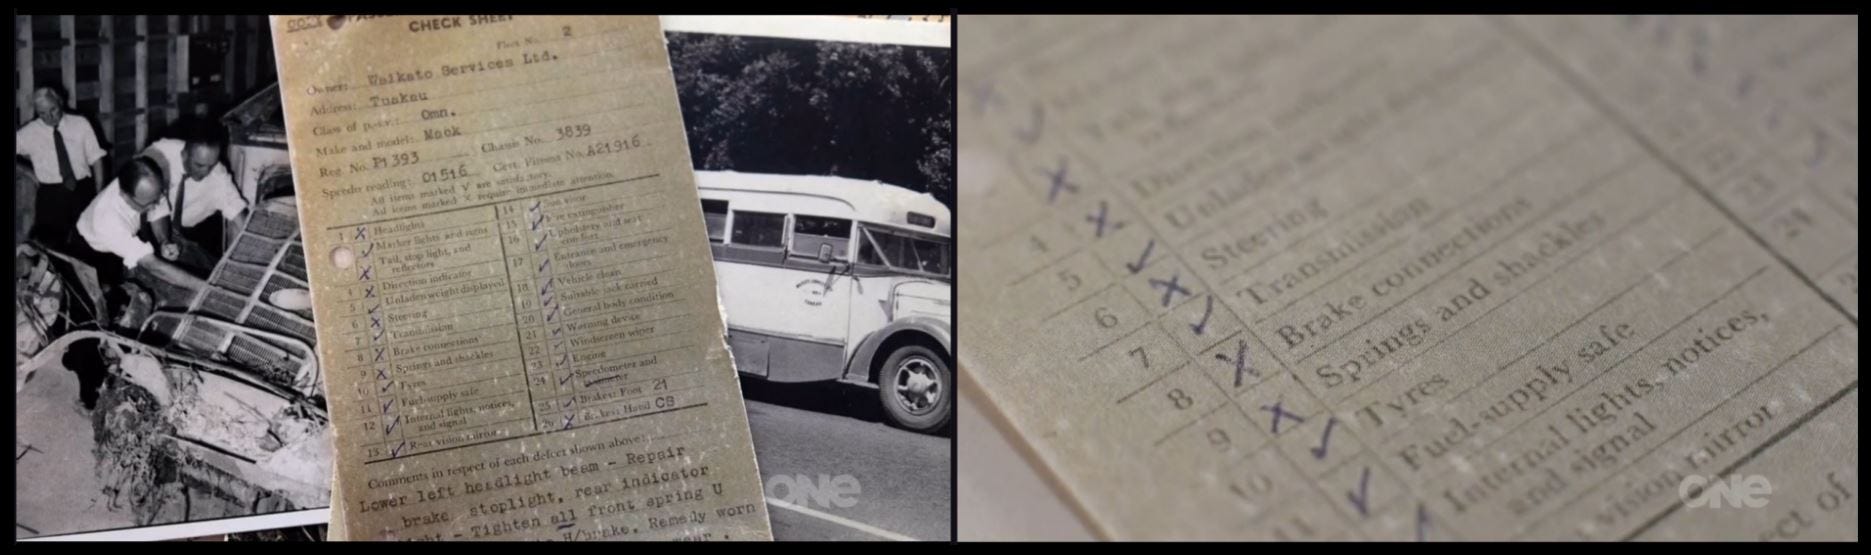 CHECK SHEET
Fleet No. 2
Owner: Waikato Services Ltd.
Address: Tuakau
Class of p.s.v.: Omn.
Make and model: Mack
Reg. No. P1393 Chassis No. 3839
Speedo reading: 01516 Cert. Fitness No. A21916
All items marked √ are satisfactory.
All items marked × require immediate attention.
1 × Headlights
√ Marker lights and signs
× Tail, stop light, and
reflectors
4 × Direction indicator
5 √ Unladen weight displayed
6 × Steering
7 √ Transmission
8 × Brake connections
9 × Springs and shackles
10 √ Tyres
11 √ Fuel-supply safe
12 √ Internal lights, notices,
and signal
13 √ Rear vision mirror
14 √ Sun visor
15 √ Fire extinguisher
16 √ Upholstery and seat
comfort
17 √ Entrance and emergency
doors
18 √ Vehicle clean
19 √ Suitable jack carried
20 √ General body condition
21 √ Warning device
22 √ Windscreen wiper
23 √ Engine
24 √ Speedometer and
25 √ Brakes: Foot 21
26 × Brakes: Hand CS
Comments in respect of each defect shown above:
Lower left headlight beam - Repair
brake, stoplight, rear indicator
- Tighten all front spring U
H/brake. Remedy worn
ONE
4
5 Steering
6 Transmission
7 Brake connections
8 Springs and shackles
9 Tyres
10 Fuel-supply safe
11 Internal lights, notices,
and signal
vision mirror
24
ect of
ONE